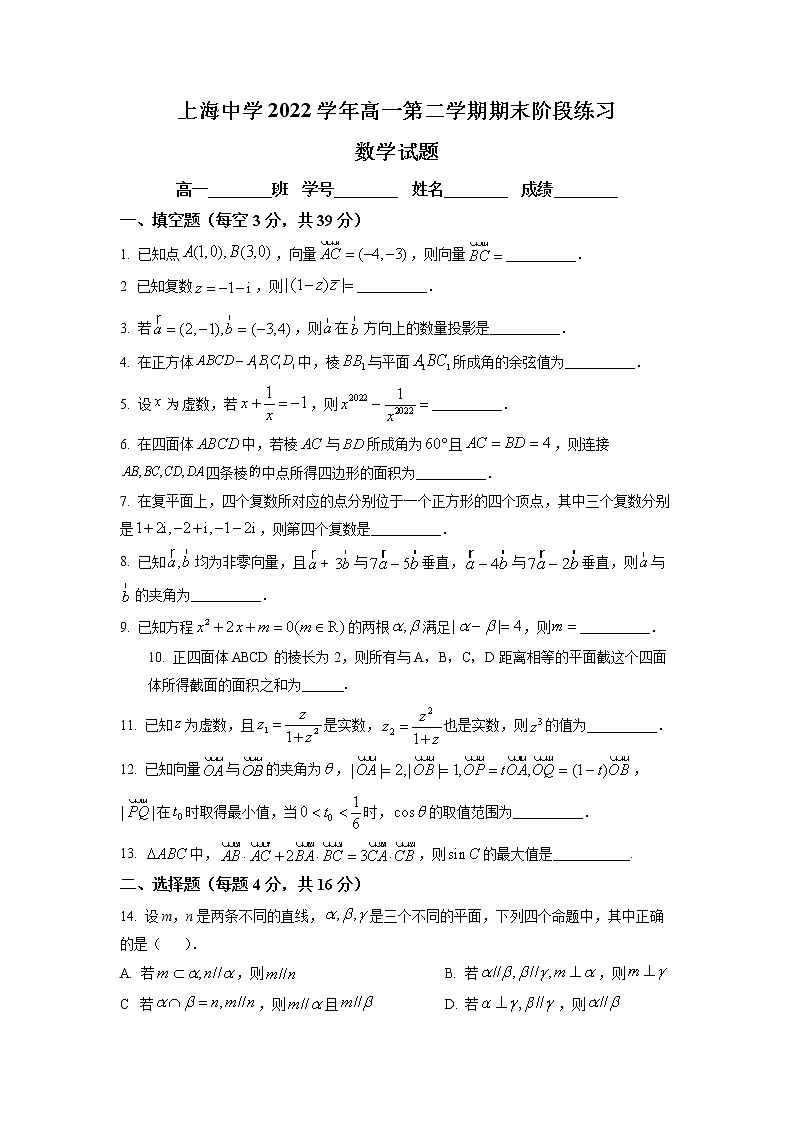 上海中学 2022 学年高一第二学期期末阶段练习
数学试题
高一________班 学号________ 姓名________ 成绩________
一、填空题（每空 3 分，共 39 分）
1. 已知点 A(1,0), B(3,0)，向量 AC = (−4,−3)，则向量 BC = __________.
2 已知复数 z = −1−i，则 |(1−z)z̅| = __________.
3. 若 a = (2,−1), b = (−3,4)，则 a 在 b 方向上的数量投影是__________.
4. 在正方体 ABCD−A₁B₁C₁D₁ 中，棱 BB₁ 与平面 A₁BC₁ 所成角的余弦值为__________.
5. 设 x 为虚数，若 x + 1/x = −1，则 x²⁰²² − 1/x²⁰²² = __________.
6. 在四面体 ABCD 中，若棱 AC 与 BD 所成角为 60° 且 AC = BD = 4，则连接
AB,BC,CD,DA 四条棱的中点所得四边形的面积为__________.
7. 在复平面上，四个复数所对应的点分别位于一个正方形的四个顶点，其中三个复数分别
是 1+2i, −2+i, −1−2i，则第四个复数是__________.
8. 已知 a, b 均为非零向量，且 a + 3b 与 7a − 5b 垂直，a − 4b 与 7a − 2b 垂直，则 a 与
b 的夹角为__________.
9. 已知方程 x² + 2x + m = 0(m ∈ R) 的两根 α, β 满足 |α − β| = 4，则 m = __________.
10. 正四面体 ABCD 的棱长为 2，则所有与 A，B，C，D 距离相等的平面截这个四面
体所得截面的面积之和为______.
11. 已知 z 为虚数，且 z₁ = z/(1+z²) 是实数，z₂ = z²/(1+z) 也是实数，则 z³ 的值为__________.
12. 已知向量 OA 与 OB 的夹角为 θ，|OA| = 2, |OB| = 1, OP = tOA, OQ = (1−t)OB，
|PQ| 在 t₀ 时取得最小值，当 0 < t₀ < 1/6 时，cos θ 的取值范围为__________.
13. ΔABC 中，AB · AC + 2BA · BC = 3CA · CB，则 sin C 的最大值是___________.
二、选择题（每题 4 分，共 16 分）
14. 设 m，n 是两条不同的直线，α, β, γ 是三个不同的平面，下列四个命题中，其中正确
的是（ ）.
A. 若 m ⊂ α, n//α，则 m//n B. 若 α//β, β//γ, m ⊥ α，则 m ⊥ γ
C 若 α ∩ β = n, m//n，则 m//α 且 m//β D. 若 α ⊥ γ, β//γ，则 α//β